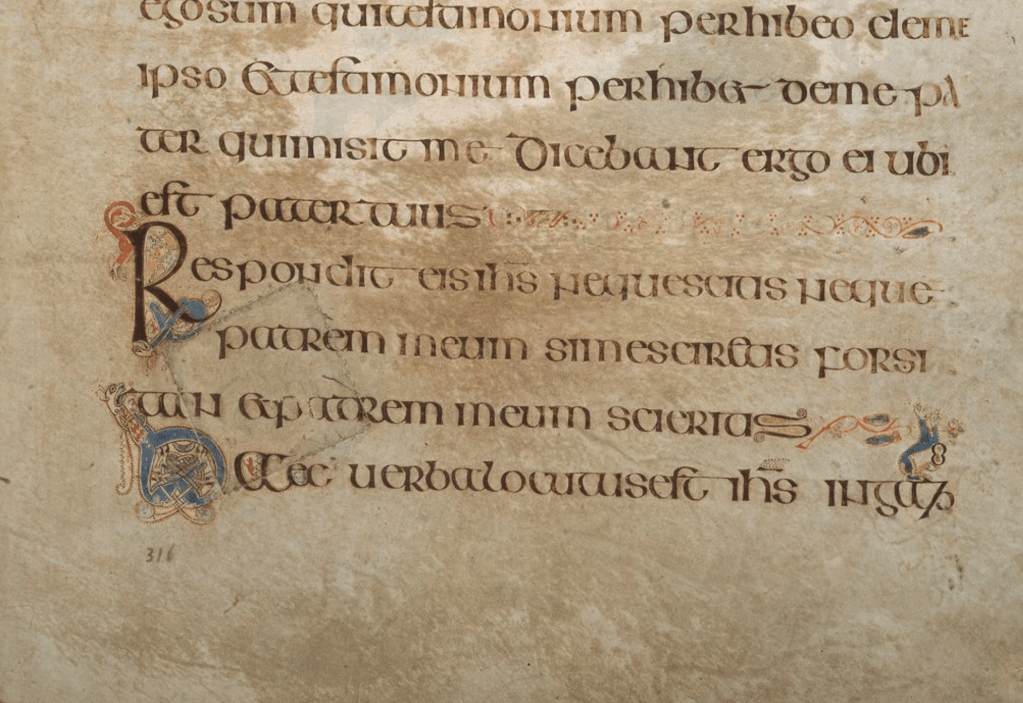 egosum quitestimonium perhibeo deme
ipso &testimonium perhib& deme pa
ter quimisit me Dicebant ergo ei ubi
est pater tuus
Respondit eis ihs nequescitis neque
patrem meum simesciretis forsi
tan &patrem meum sciretis
Haec uerbalocutusest ihs ingaz
316